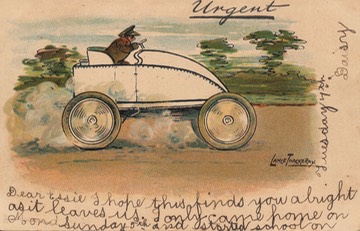 Urgent
Daisy
Tuesday night
Lance Thackeray
Dear Essie I hope this finds you alright
as it leaves us. I only came home on
Sunday and started school on